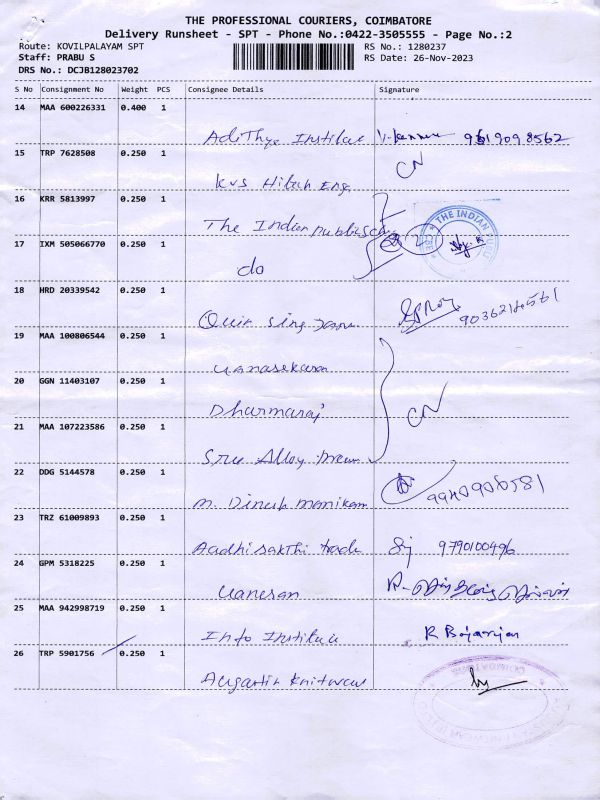 THE PROFESSIONAL COURIERS, COIMBATORE
Delivery Runsheet - SPT - Phone No.:0422-3505555 - Page No.:2
Route: KOVILPALAYAM SPT RS No.: 1280237
Staff: PRABU S RS Date: 26-Nov-2023
DRS No.: DCJB128023702
S No Consignment No Weight PCS Consignee Details Signature
14 MAA 600226331 0.400 1
Adithya Institue 9619098562
15 TRP 7628508 0.250 1
CN
KVS Hitech Eng
16 KRR 5813997 0.250 1
The Indian public sch
THE INDIAN
17 IXM 505066770 0.250 1
2
do
18 HRD 20339542 0.250 1
Quik sing
19 MAA 100806544 0.250 1
Uanasekaran
20 GGN 11403107 0.250 1
Dharmaraj CN
21 MAA 107223586 0.250 1
Sree Alloy
22 DDG 5144578 0.250 1
M. Dinesh manikam
23 TRZ 61009893 0.250 1
Aadhi sakthi trade 9790100496
24 GPM 5318225 0.250 1
Uanesan
25 MAA 942998719 0.250 1
Info Institue
26 TRP 5901756 0.250 1